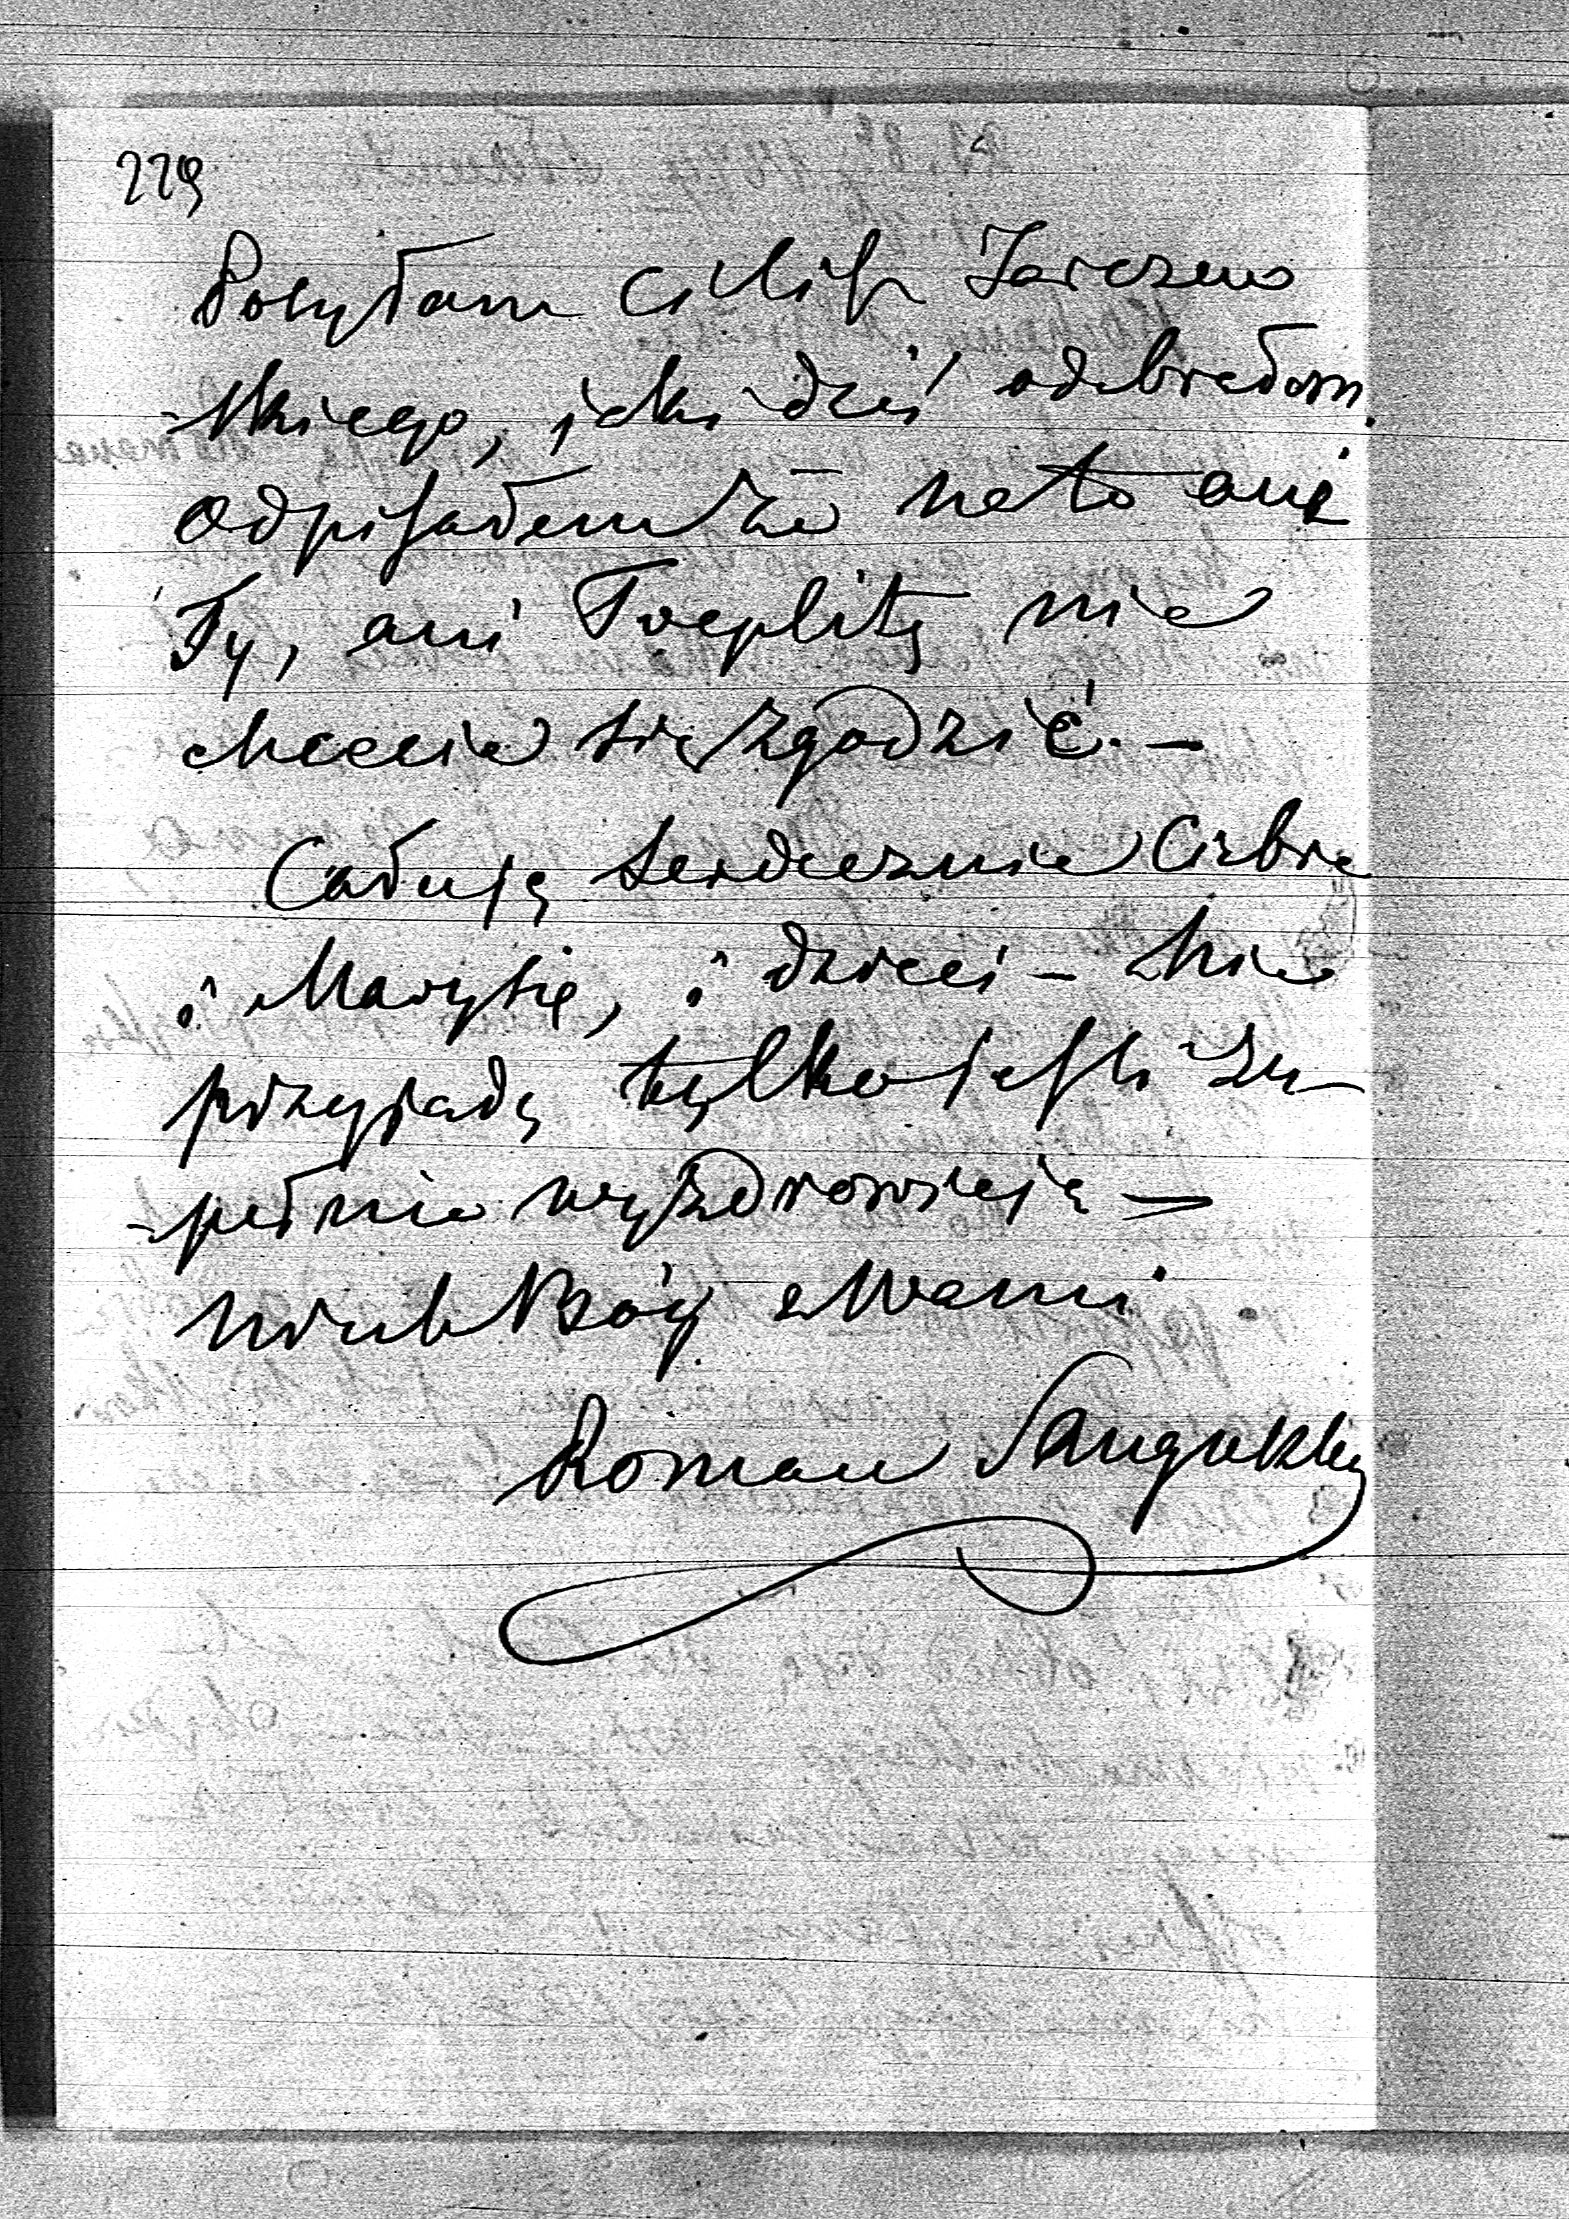 229
Posyłam Ci list Jarczew
-skiego, jaki dziś odebrałem.
Odpisałem że na to ani
Ty, ani Toeplitz nie
chcecie się zgodzić. —
Całuję serdecznie Ciebie
i Marysię, i dzieci —
przyjadę tylko jeśli zu
-pełnie wyzdrowieję —
niech Bóg z Wami
Roman Sanguszko